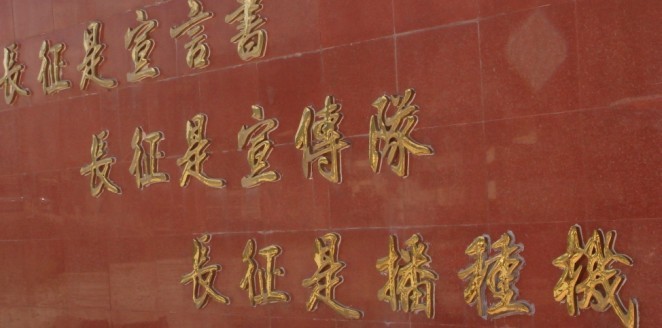 長征是宣言書
長征是宣傳隊
長征是播種機